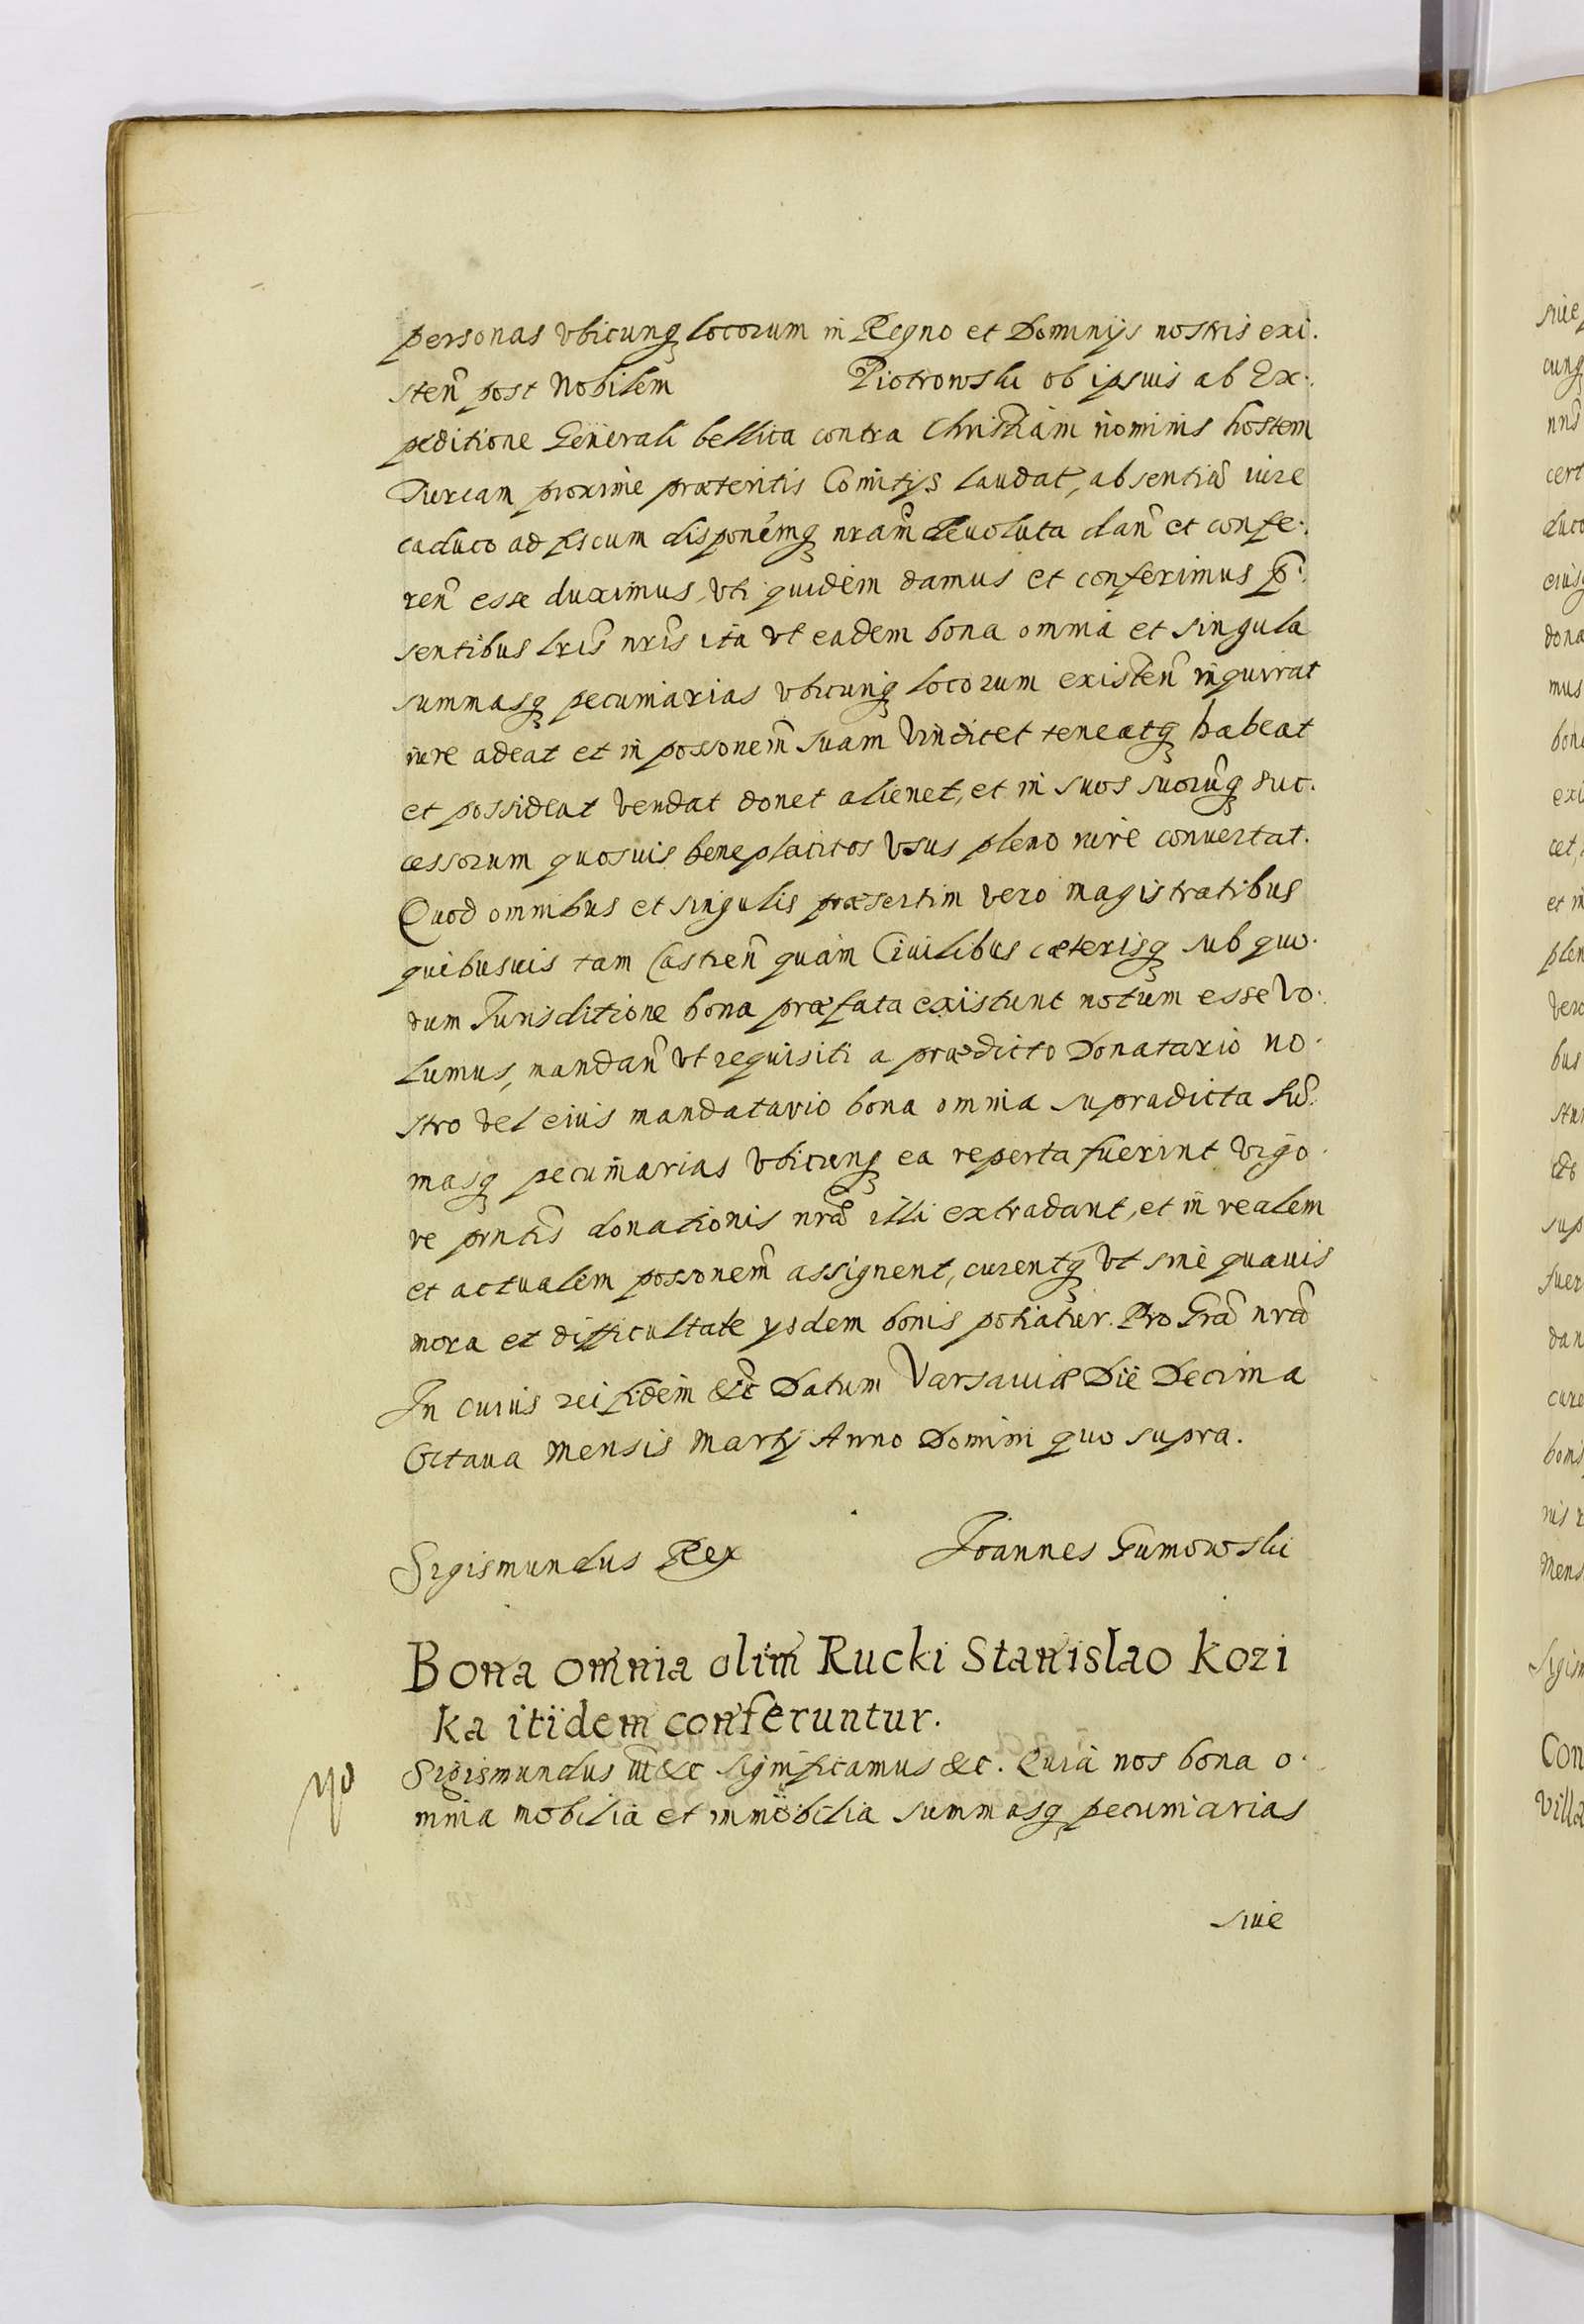 personas vbicunq locorum in Regno et Dominijs nostris exi.
sten̄ post Nobilem Piotrowski ob ipsius ab Ex.
peditione Generali bellica contra Christiani nominis hostem
Turcam proxime præteritis Comitijs laudat, absentiā iure
caduco ad fiscum disponēmq nram̄ deuoluta dan̄ et confe.
ren̄ esse duximus, vti quidem damus et conferimus p̄.
sentibus lris̄ nris̄ ita vt eadem bona omnia et singula
summasq pecuniarias vbicunq locorum existen̄ inquirat
iure adeat et in possonem̄ suam vindicet teneatq habeat
et possideat vendat donet alienet, et in suos suorūq suc.
cessorum quosuis beneplacitos vsus pleno iure conuertat.
Quod omnibus et singulis præsertim vero magistratibus
quibusuis tam Castren̄ quam Ciuilibus cæterisq sub quo.
rum Jurisditione bona præfata existunt notum esse vo.
lumus, mandan̄ vt requisiti a prædicto Donatario no.
stro vel eius mandatario bona omnia supradicta sū.
masq pecuniarias vbicunq ea reperta fuerint vigo.
re pntis̄ donationis nrǣ illi extradant, et in realem
et actualem possonem̄ assignent, curentq vt sine quauis
mora et difficultate ysdem bonis potiatur. Pro Gra̅ nra̅
In cuius rei fidem &c̄ Datum Varsauiæ Die Decima
Octaua Mensis Martij Anno Domini quo supra.
Sigismundus Rex Joannes Gumowski
Bona omnia olim Rucki Stanislao Kozi
ka itidem conferuntur.
Sigismundus III &c significamus &c. Quia nos bona o.
mnia mobilia et immobilia summasq pecuniarias
siue